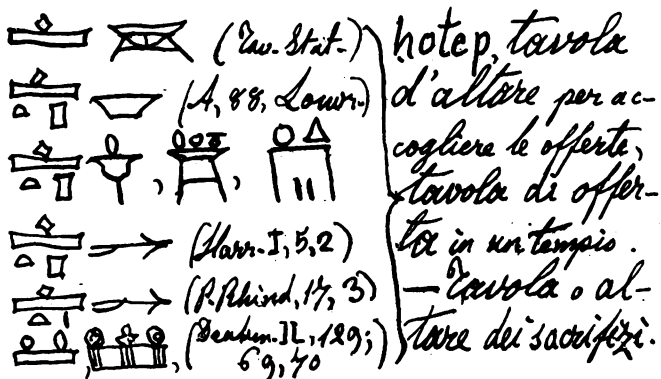 (Tav. Stat.)
(A, 88, Louvr.)
(Harr. I, 5, 2)
(P. Rhind, 17, 3)
II, 129;
69, 70
hotep, tavola
d'altare per ac-
cogliere le offerte,
tavola di offer-
ta in un tempio.
— Tavola o al-
tare dei sacrifizi.